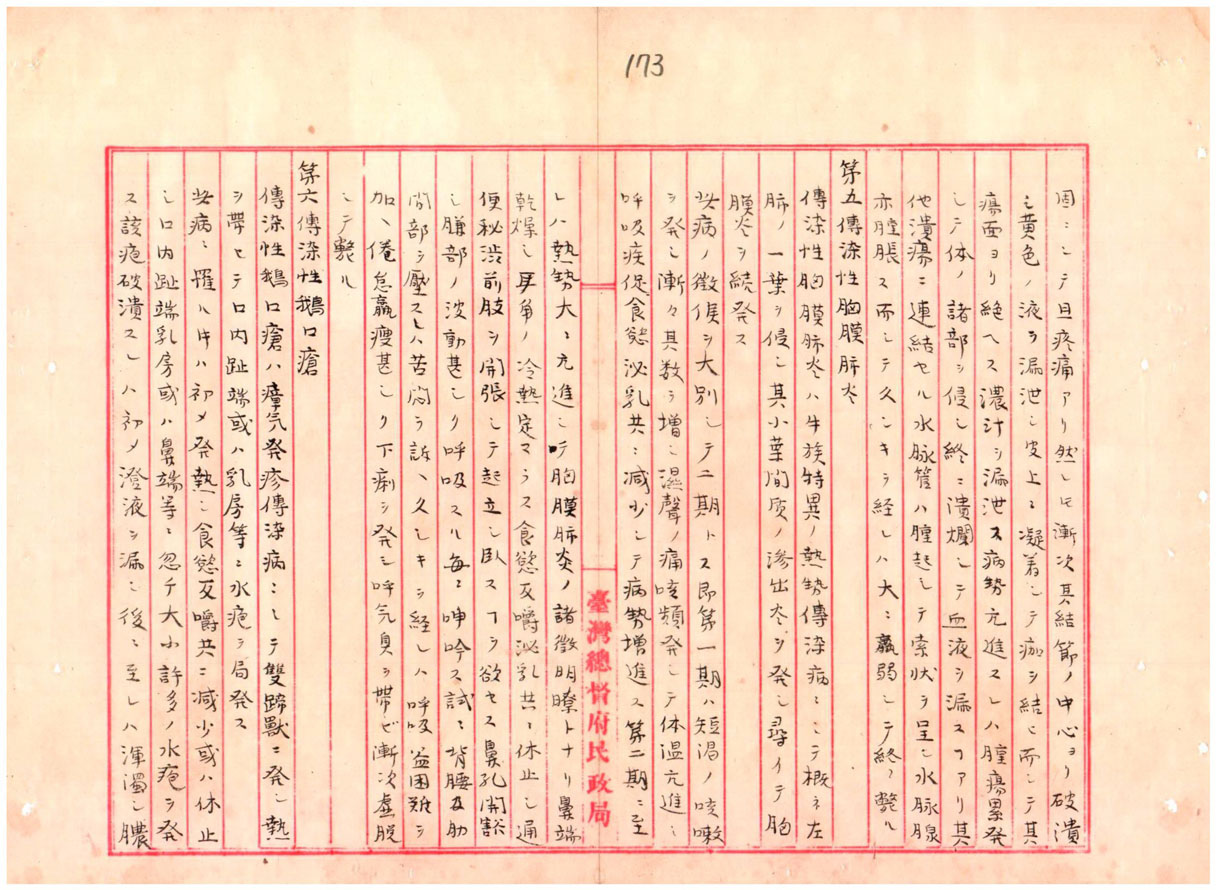 173
固ニシテ且疼痛アリ然レモ漸次其結節ノ中心ヨリ破潰
シ黄色ノ液ヲ漏泄シ皮上ニ凝着シテ痂ヲ結ヒ而シテ其
瘍面ヨリ絶ヘス濃汁ヲ漏泄ス病勢亢進スレハ腫瘍累発
シテ体ノ諸部ヲ侵シ終ニ潰爛シテ血液ヲ漏スヿアリ其
他潰瘍ニ連結セル水脉管ハ腫起シテ索状ヲ呈シ水脉腺
亦腫脹ス而シテ久シキヲ経レハ大ニ羸弱シテ終ノ斃ル
第五傳染性胸膜肺炎
傳染性胸膜肺炎ハ牛族特異ノ熱勢傳染病ニシテ概ネ左
肺ノ一葉ヲ侵シ其小葉間质ノ滲出炎ヲ発シ尋イテ胸
膜炎ヲ続発ス
此病ノ徴候ヲ大別シテ二期トス即第一期ハ短渇ノ咳嗽
ヲ発シ漸々其数ヲ増シ濕聲ノ痛咳頻発シテ体温亢進シ
呼吸疾促食慾泌乳共ニ減少シテ病勢増進ス第二期ニ至
臺灣總督府民政局
レハ熱勢大ニ亢進シテ胸膜肺炎ノ諸徴明瞭トナリ鼻端
乾燥シ耳角ノ冷熱定マラス食慾反嚼泌乳共ニ休止シ通
便秘渋前肢ヲ開張シテ起立シ臥スヿヲ欲セス鼻孔開豁
シ膁部ノ波動甚シク呼吸スル毎ニ呻吟ス試ニ背腰及肋
間部ヲ壓スレハ苦悶ヲ訴ヘ久シキヲ経レハ呼吸益困難ヲ
加ヘ倦怠羸瘦甚シク下痢ヲ発シ呼気臭ヲ帯ビ漸次虚脱
シテ斃ル
第六傳染性鵝口瘡
傳染性鵝口瘡ハ瘴気発疹傳染病ニシテ雙蹄獸ニ発シ熱
ヲ帯ヒテ口内趾端或ハ乳房等ニ水疱ヲ局発ス
此病ニ罹ル片ハ初メ発熱シ食慾反嚼共ニ減少或ハ休止
シ口内趾端乳房或ハ鼻端等ニ忽チ大小許多ノ水疱ヲ発
ス該疱破潰スレハ初メ澄液ヲ漏シ後ニ至レハ渾濁シ膿